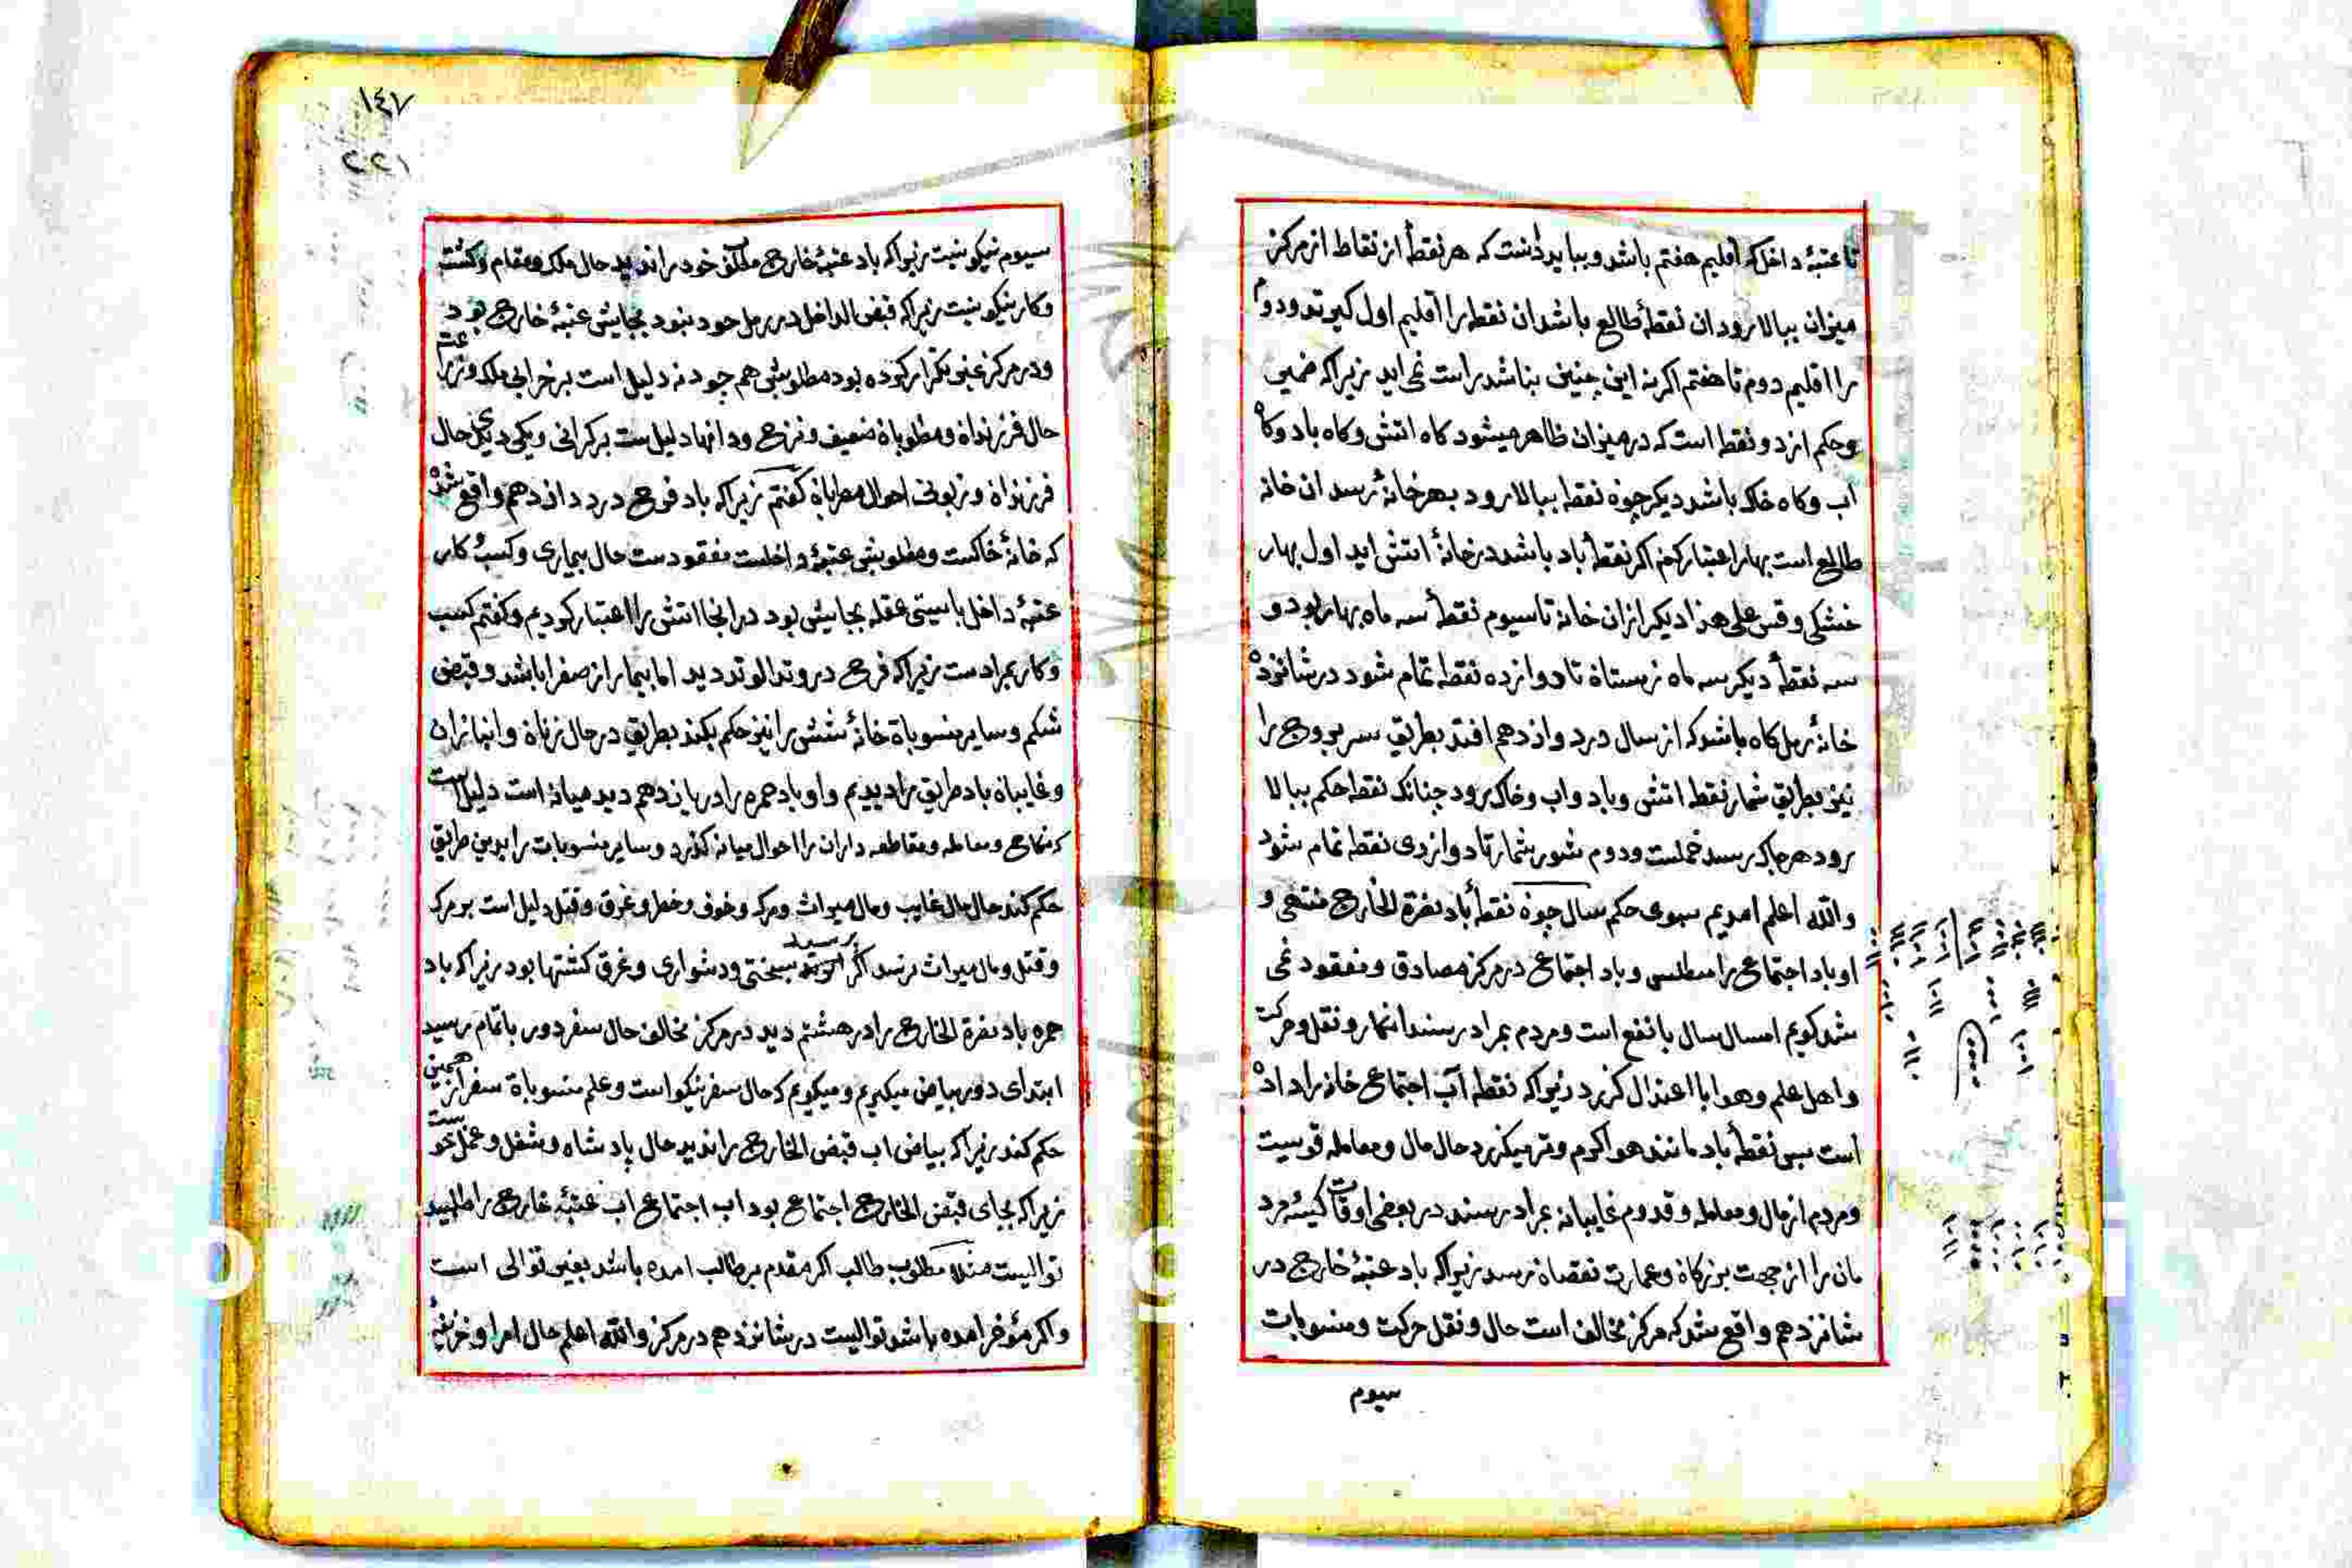 تا عتبهٔ داخل که اقلیم هفتم باشد و بباید دانست که هر نقطهٔ از نقاط از مرکز
میزان ببالا رود ان نقطهٔ طالع باشد ان نقطه را اقلیم اول کیرند و دوم
را اقلیم دوم تا هفتم اکر نه این چنین بناشد راست نمی اید زیرا که ضمیر
و حکم از دو نقطه است که در میزان ظاهر میشود کاه اتش و کاه باد و کاه
اب و کاه خاک باشد دیکر چون نقطه ببالا رود بهر خانهٔ رسد ان خانه
طالع است بهار اعتبار کن اکر نقطهٔ باد باشد در خانهٔ اتش اید اول بهار
خشکی و قس علی هذا دیکر از ان خانه تا سیوم نقطهٔ سه ماه بهار بود و
سه نقطهٔ دیکر سه ماه زمستان تا دوازده نقطه تمام شود در شانزده
خانهٔ رمل کاه باشد که از سال در دوازدهم افتد بطریق سر بروج را
نیز بطریق شمار نقطه اتش و باد و اب و خاک برود چنانک نقطه حکم ببالا
رود هر جا که رسد حملست و دوم ثور شمار تا دوازدی نقطه تمام شود
والله اعلم امدیم بسوی حکم سال چون نقطهٔ باد نصرة الخارج منتهی و
او باد اجتماع را مطلبس و باد اجتماع در مرکز مصادق و مفقود نمی
شد کویم امسال سال با نفع است و مردم بمراد رسند انمار و نقل و حرکت
و اهل علم و هوا با اعتدال کزرد زیرا که نقطه آب اجتماع خانه را داده
است سبس نقطهٔ باد مانند هوا کرم و تر میکزرد حال مال و معامله قوسیت
و مردم از مال و معامله و قدوم غایبانه بمراد رسند در بعضی اوقات کیسه مرد
مان را از جهت بزرکان و عمارت نقصان رسد زیرا که باد عتبهٔ خارج در
شانزدهم واقع شد که مرکز مخالف است حال و نقل حرکت و منسوبات
سیوم
۱٤۷
۲۰۲۱
سیوم نیکو نیست زیرا که باد عتبهٔ خارج ملکن خود را ندید حال ملک و مقام و کشت
و کار نیکو نیست زیرا که قبض الداخل در رمل خود نبود بجایش عتبهٔ خارج بود
و در مرکز غنی تکرار کرده بود مطلوبش هم خود نه دلیل است بر خرابی ملک و زرا
حال فرزندان و مطلوبان ضعیف و نرخ و دانها دلیل ست بر کرانی و یکی دیکر حال
فرزندان و زبونی احوال مطربان کفتم زیرا که باد فرح در دوازدهم واقع شد
که خانهٔ خاکست و مطلوبش عتبهٔ داخلست مفقود ست حال بیماری و کسب کار
عتبهٔ داخل بایستی عقله بجایش بود در انجا اتش را اعتبار کردیم و کفتم کسب
و کار بمرادست زیرا که فرح در وتد الوتد دید اما بیمار از صفرا باشد و قبض
شکم و سایر منسوبات خانهٔ شش را نیز حکم بکند بطریق در حال زنان و انبازان
و غایبان باد طریق را دیدیم و او باد حمره را در یازدهم دید میانه است دلیل است
که نکاح و معامله و مقاطعه داران را احوال میانه کزرد و سایر منسوبات را بدین طریق
حکم کند حال مال غایب و مال میراث و مرک و خوف و خطر و غرق و قتل دلیل است بر مرک
و قتل و مال میراث نرسد اکر رسید بسختی و دشواری و غرق کشتها بود زیرا که باد
حمره باد نصرة الخارج را در هشتم دید در مرکز مخالف حال سفر دور باتمام رسید
ابتدای دور بیاض میکیریم و میکویم که حال سفر نیکو است و علم منسوبات سفر از همین
حکم کند زیرا که بیاض اب قبض الخارج را ندید حال پادشاه و شغل و عمل خوست
زیرا که بجای قبض الخارج اجتماع بود اب اجتماع اب عتبهٔ خارج را طلبید
توالیست مثلا مطلوب طالب اکر مقدم بر طالب امده باشد یعنی توالی است
و اکر مؤخر امده باشد توالیست در شانزدهم در مرکز والله اعلم حال امرا و خزینهٔ